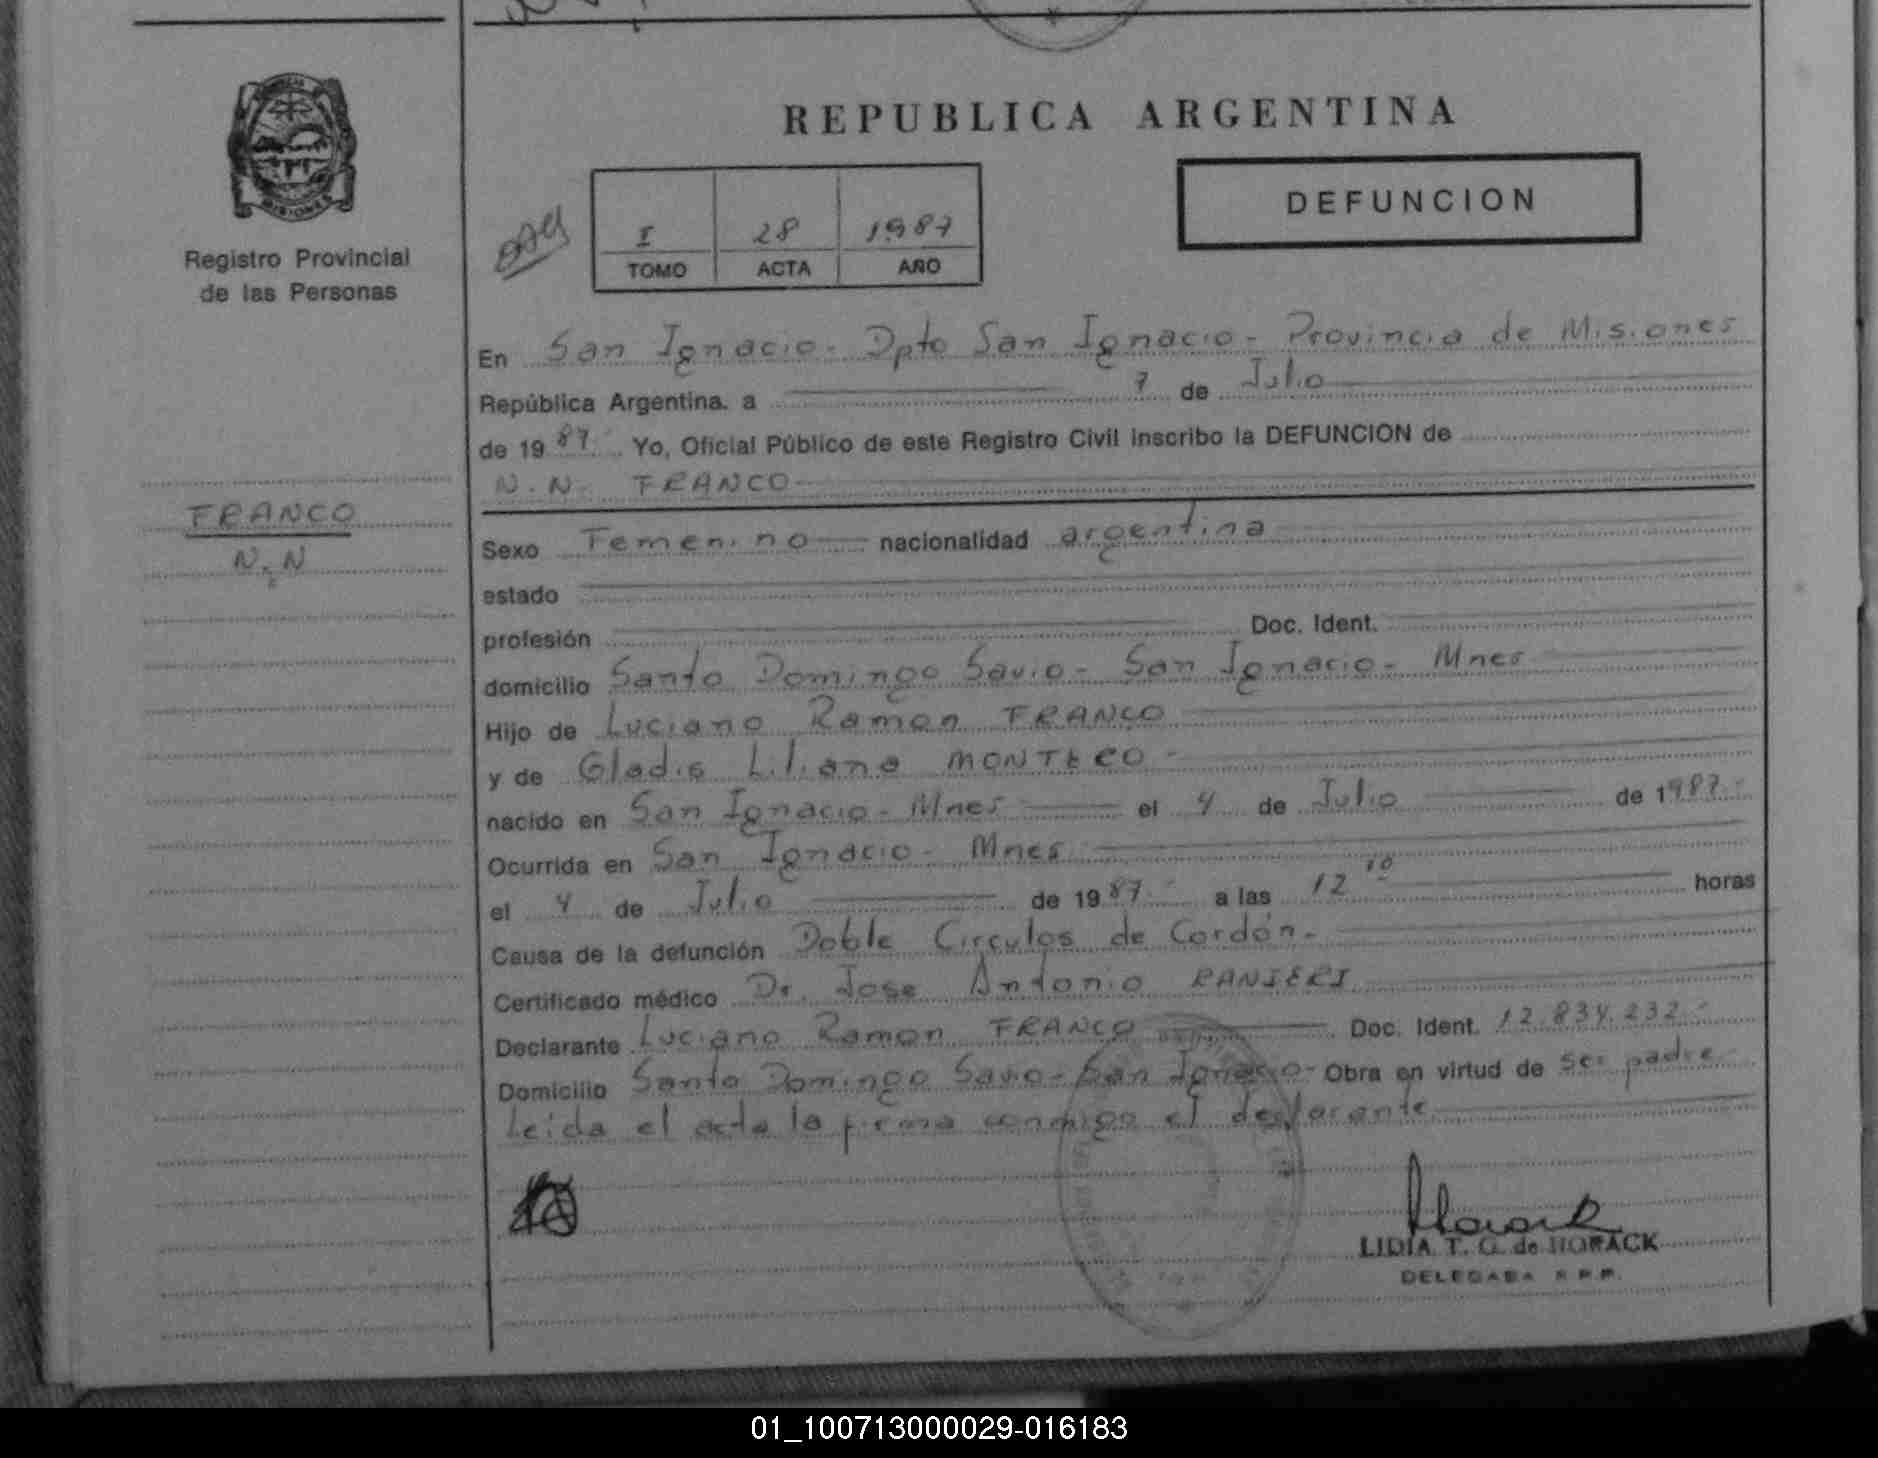 REPUBLICA ARGENTINA
DEFUNCION
I 28 1987
TOMO ACTA AÑO
Registro Provincial
de las Personas
MISIONES
FRANCO
N.N
En San Ignacio - Dpto San Ignacio - Provincia de Misiones
República Argentina. a 7 de Julio
de 1987. Yo, Oficial Público de este Registro Civil inscribo la DEFUNCION de
N.N. FRANCO
Sexo Femenino nacionalidad argentina
estado
profesión Doc. Ident.
domicilio Santo Domingo Savio - San Ignacio - Mnes
Hijo de Luciano Ramon FRANCO
y de Gladis Liliana MONTERO -
nacido en San Ignacio - Mnes el 4 de Julio de 1987.-
Ocurrida en San Ignacio - Mnes.
el 4 de Julio de 1987.- a las 12 10 horas
Causa de la defunción Doble Circulos de Cordón -
Certificado médico Dr. Jose Antonio RANIERI
Declarante Luciano Ramon FRANCO Doc. Ident. 12.834.232.-
Domicilio Santo Domingo Savio - San Ignacio - Obra en virtud de ser padre -
Leida el acta la firma conmigo el declarante
LIDIA T. G. de HORACK
DELEGADA R.P.P.
01_100713000029-016183